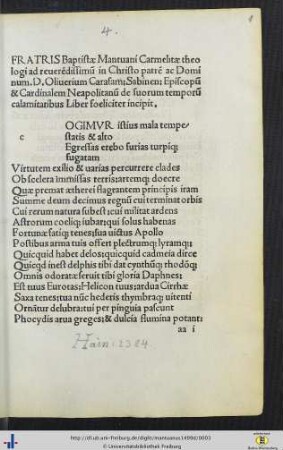 4.
FRATRIS Baptistæ Mantuani Carmelitæ theo
logi ad reuerēdissimū in Christo patrē ac Domi
num. D. Oliuerium Carafam: Sabinen: Episcopū
& Cardinalem Neapolitanū de suorum temporū
calamitatibus Liber foeliciter incipit.
c
OGIMVR istius mala tempe-
statis & alto
Egressas erebo furias turpiq;
fugatam
Virtutem exilio & uarias percurrere clades
Ob scelera immissas terris: artemq; docere
Quæ premat ætherei flagrantem principis iram
Summe deum decimus regnū cui terminat orbis
Cui rerum natura subest: cui militat ardens
Astrorum coeliq; iubar: qui solus habenas
Fortunæ fatiq; tenes: sua uictus Apollo
Postibus arma tuis offert plectrumq; lyramq;:
Quicquid habet delos: quicquid cadmeia dirce
Quicqd inest delphis tibi dat cynthūq; rhodōq;
Omnis odoratæ seruit tibi gloria Daphnes:
Est tuus Eurotas: Helicon tuus: ardua Cirrhæ
Saxa tenes: tua nūc hederis thymbraq; uirenti
Ornātur delubra: tui per pinguia pascunt
Phocydis arua greges: & dulcia flumina potant:
aa i
Hain: 2384
http://dl.ub.uni-freiburg.de/diglit/mantuanus1499d/0003
© Universitätsbibliothek Freiburg